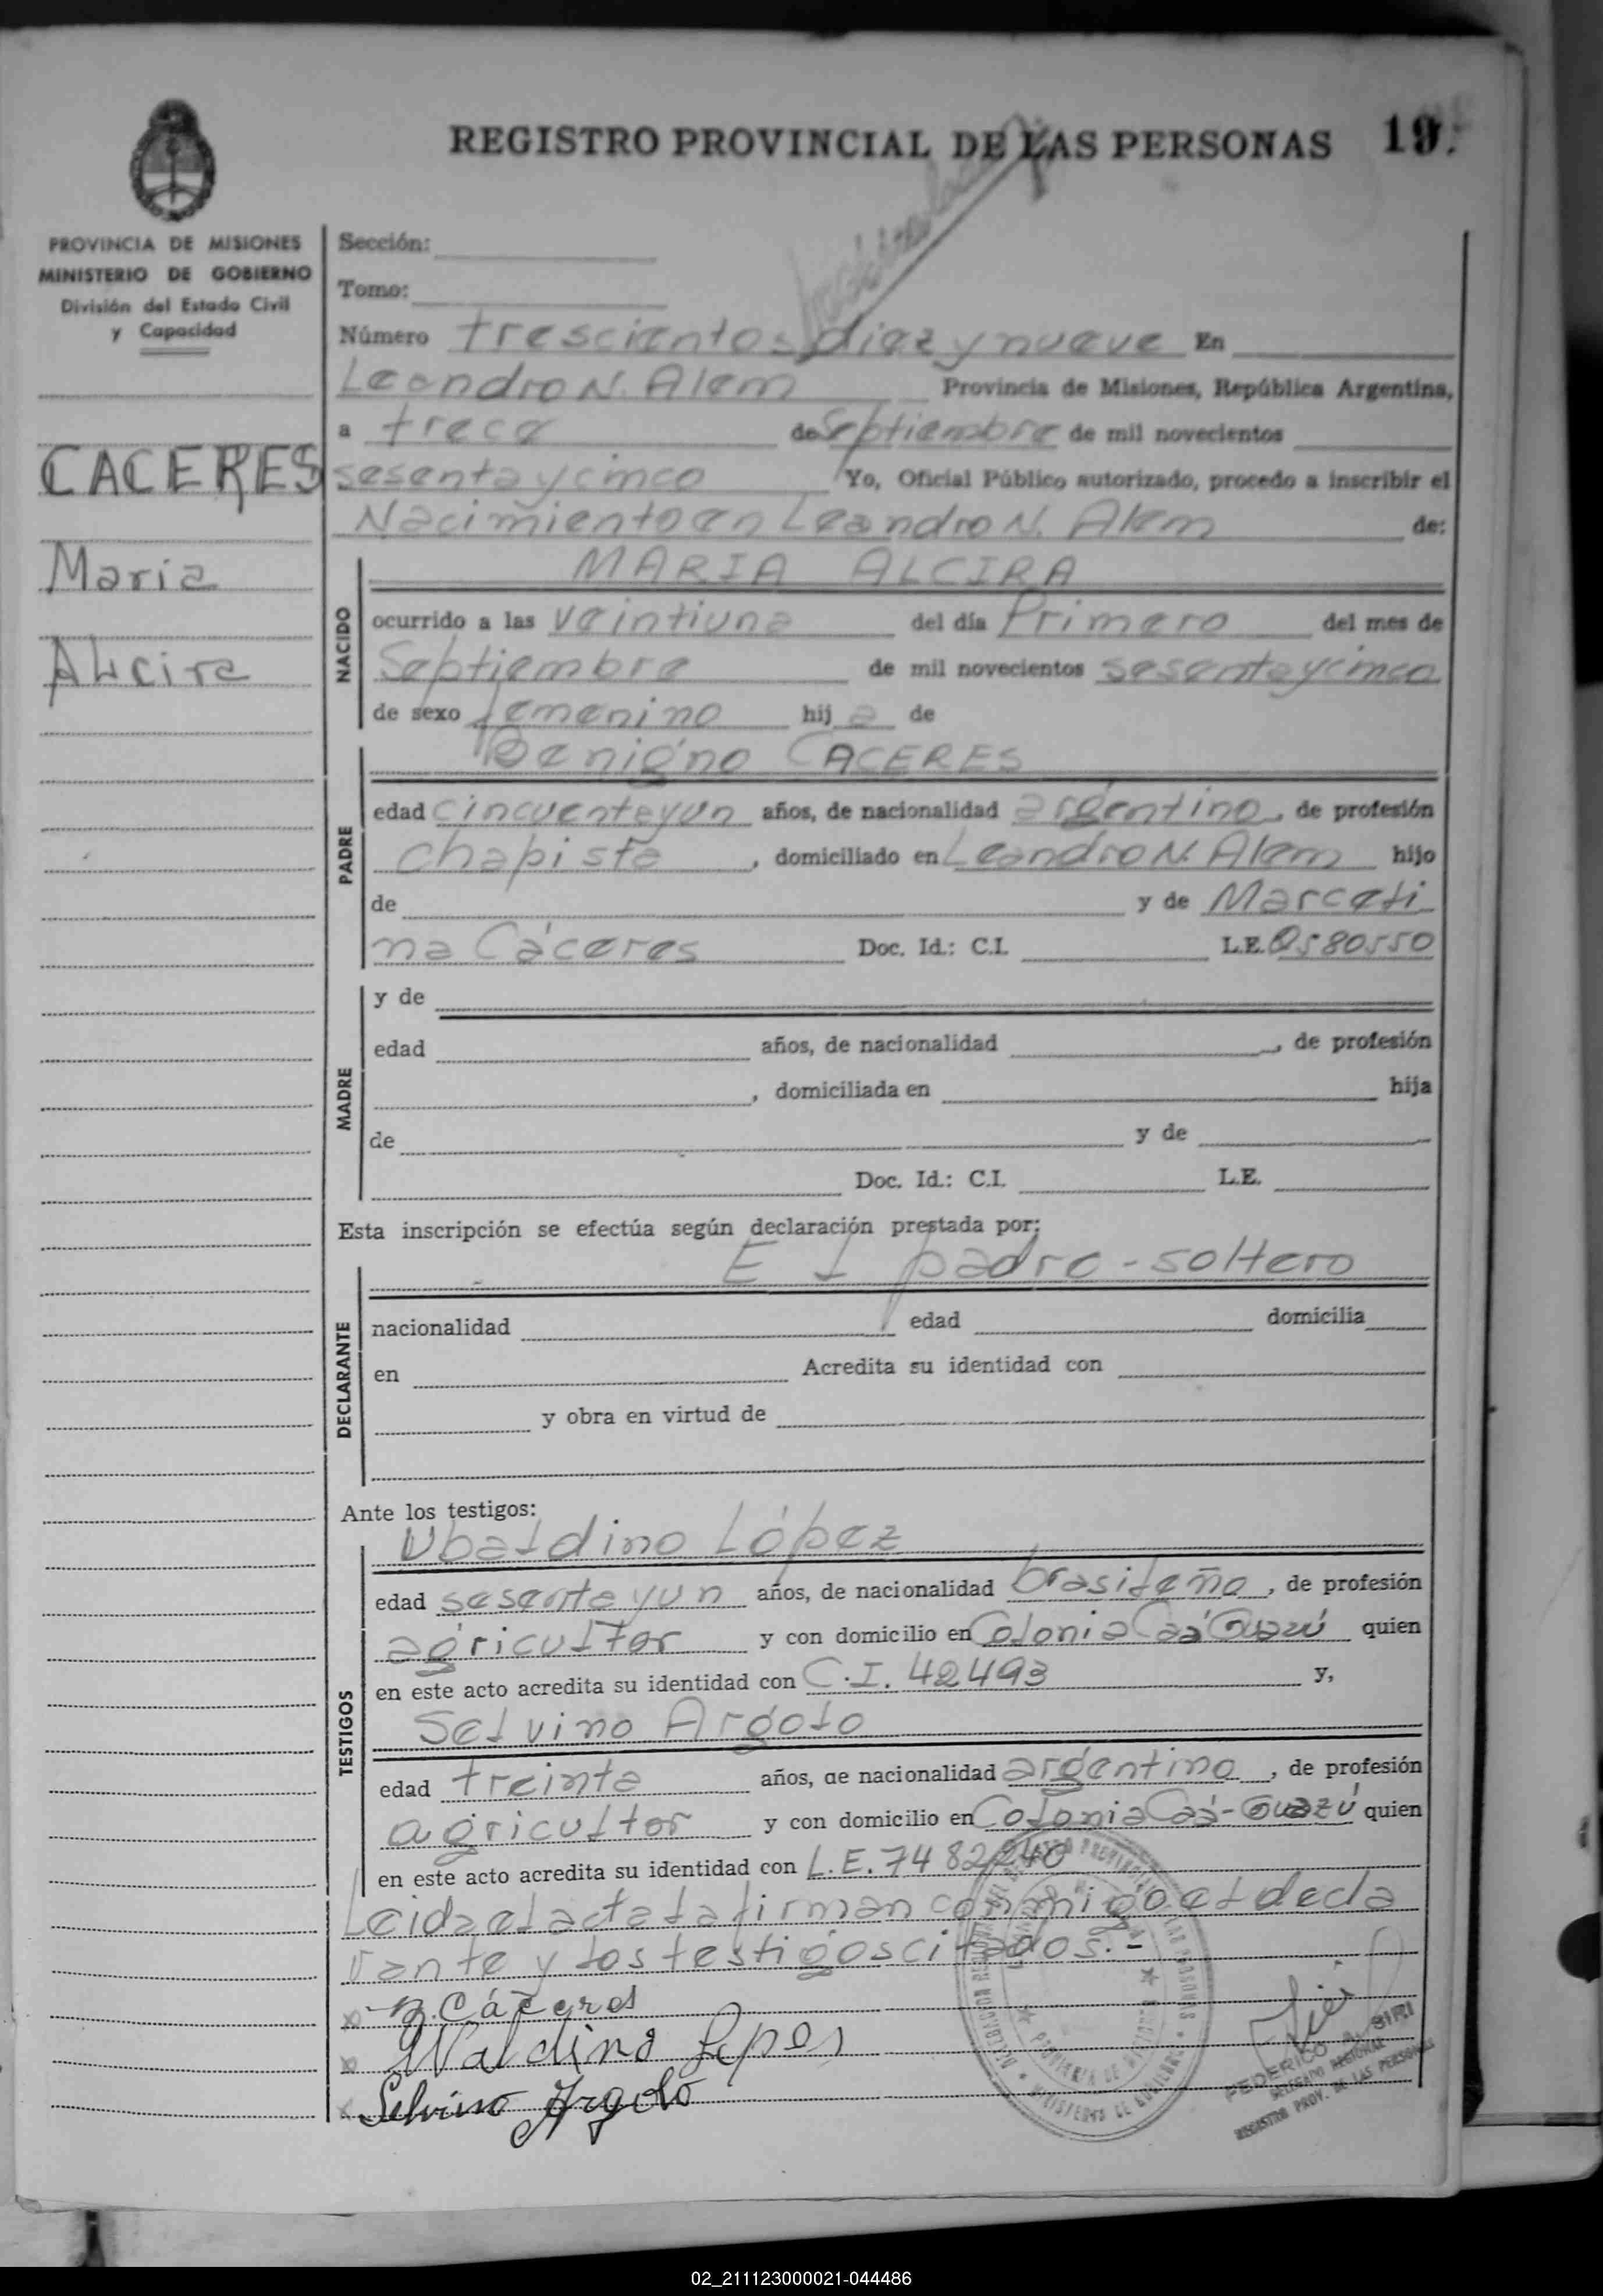 REGISTRO PROVINCIAL DE LAS PERSONAS 19
PROVINCIA DE MISIONES
MINISTERIO DE GOBIERNO
División del Estado Civil
y Capacidad
CACERES
Maria
Alicira
Sección:
Tomo:
Número trescientos diez y nueve En
Leandro N. Alem Provincia de Misiones, República Argentina,
a trece de Septiembre de mil novecientos
sesenta y cinco Yo, Oficial Público autorizado, procedo a inscribir el
Nacimiento en Leandro N. Alem de:
NACIDO
MARIA ALCIRA
ocurrido a las veintiuna del día Primero del mes de
Septiembre de mil novecientos sesenta y cinco
de sexo femenino hij a de
PADRE
Benigno CACERES
edad cincuenta y un años, de nacionalidad argentino, de profesión
chapista, domiciliado en Leandro N. Alem hijo
de y de Marceli
na Cáceres Doc. Id.: C.I. L.E. 0580550
MADRE
y de
edad años, de nacionalidad , de profesión
, domiciliada en hija
de y de
Doc. Id.: C.I. L.E.
Esta inscripción se efectúa según declaración prestada por:
DECLARANTE
El padre - soltero
nacionalidad edad domicilia
en Acredita su identidad con
y obra en virtud de
Ante los testigos:
TESTIGOS
Ubaldino López
edad sesenta y un años, de nacionalidad brasileña, de profesión
agricultor y con domicilio en Colonia Caá Guazú quien
en este acto acredita su identidad con C.I. 42493 y,
Selvino Argolo
edad treinta años, de nacionalidad argentino, de profesión
agricultor y con domicilio en Colonia Caá-Guazú quien
en este acto acredita su identidad con L.E. 7482240
Leida el acta la firman conmigo el decla
rante y los testigos citados.-
B. Cáceres
Waldino Lopes
Selvino Argolo
FEDERICO A. SIRI
DELEGADO REGIONAL
REGISTRO PROV. DE LAS PERSONAS
02_211123000021-044486